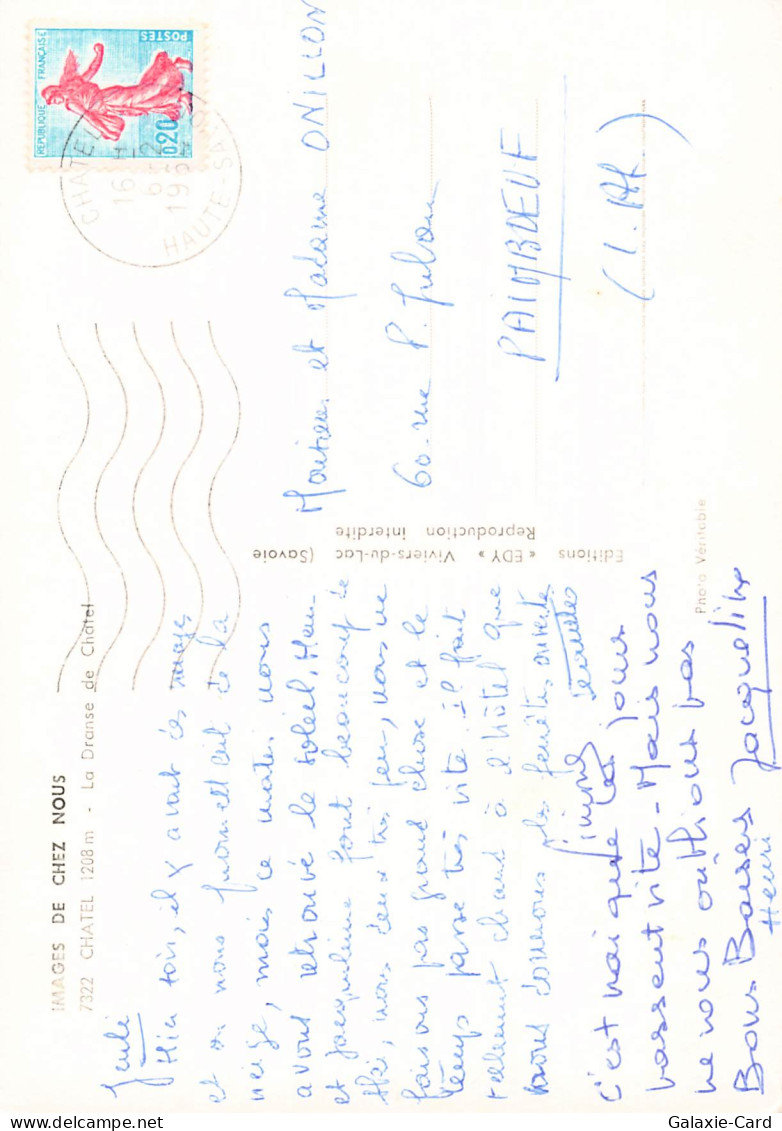 IMAGES DE CHEZ NOUS
7322 CHATEL 1208 m - La Dranse de Châtel
Jeudi
Hier soir, il y avait des nuages
et on nous promettait de la
neige, mais ce matin nous
avons retrouvé le soleil. Hen-
et Jacqueline font beaucoup de
ski, nous deux très peu, nous ne
faisons pas grand chose et le
temps passe très vite. Il fait
tellement chaud à l'hôtel que
nous dormons les fenêtres ouvertes
Simone
C'est vrai que les jours
passent vite - Mais nous
ne nous oublions pas
Bons Baisers Jacqueline
Henri
Editions « EDY » Viviers-du-Lac (Savoie
Reproduction interdite
Photo Véritable
REPUBLIQUE FRANÇAISE
POSTES
0,20
CHATEL
16 H
6-2
19
HAUTE-SAVOIE
Monsieur et Madame ONILLON
60 rue P.
PAIMBOEUF
(L. Atl.)
Galaxie-Card
Galaxie-Card.com